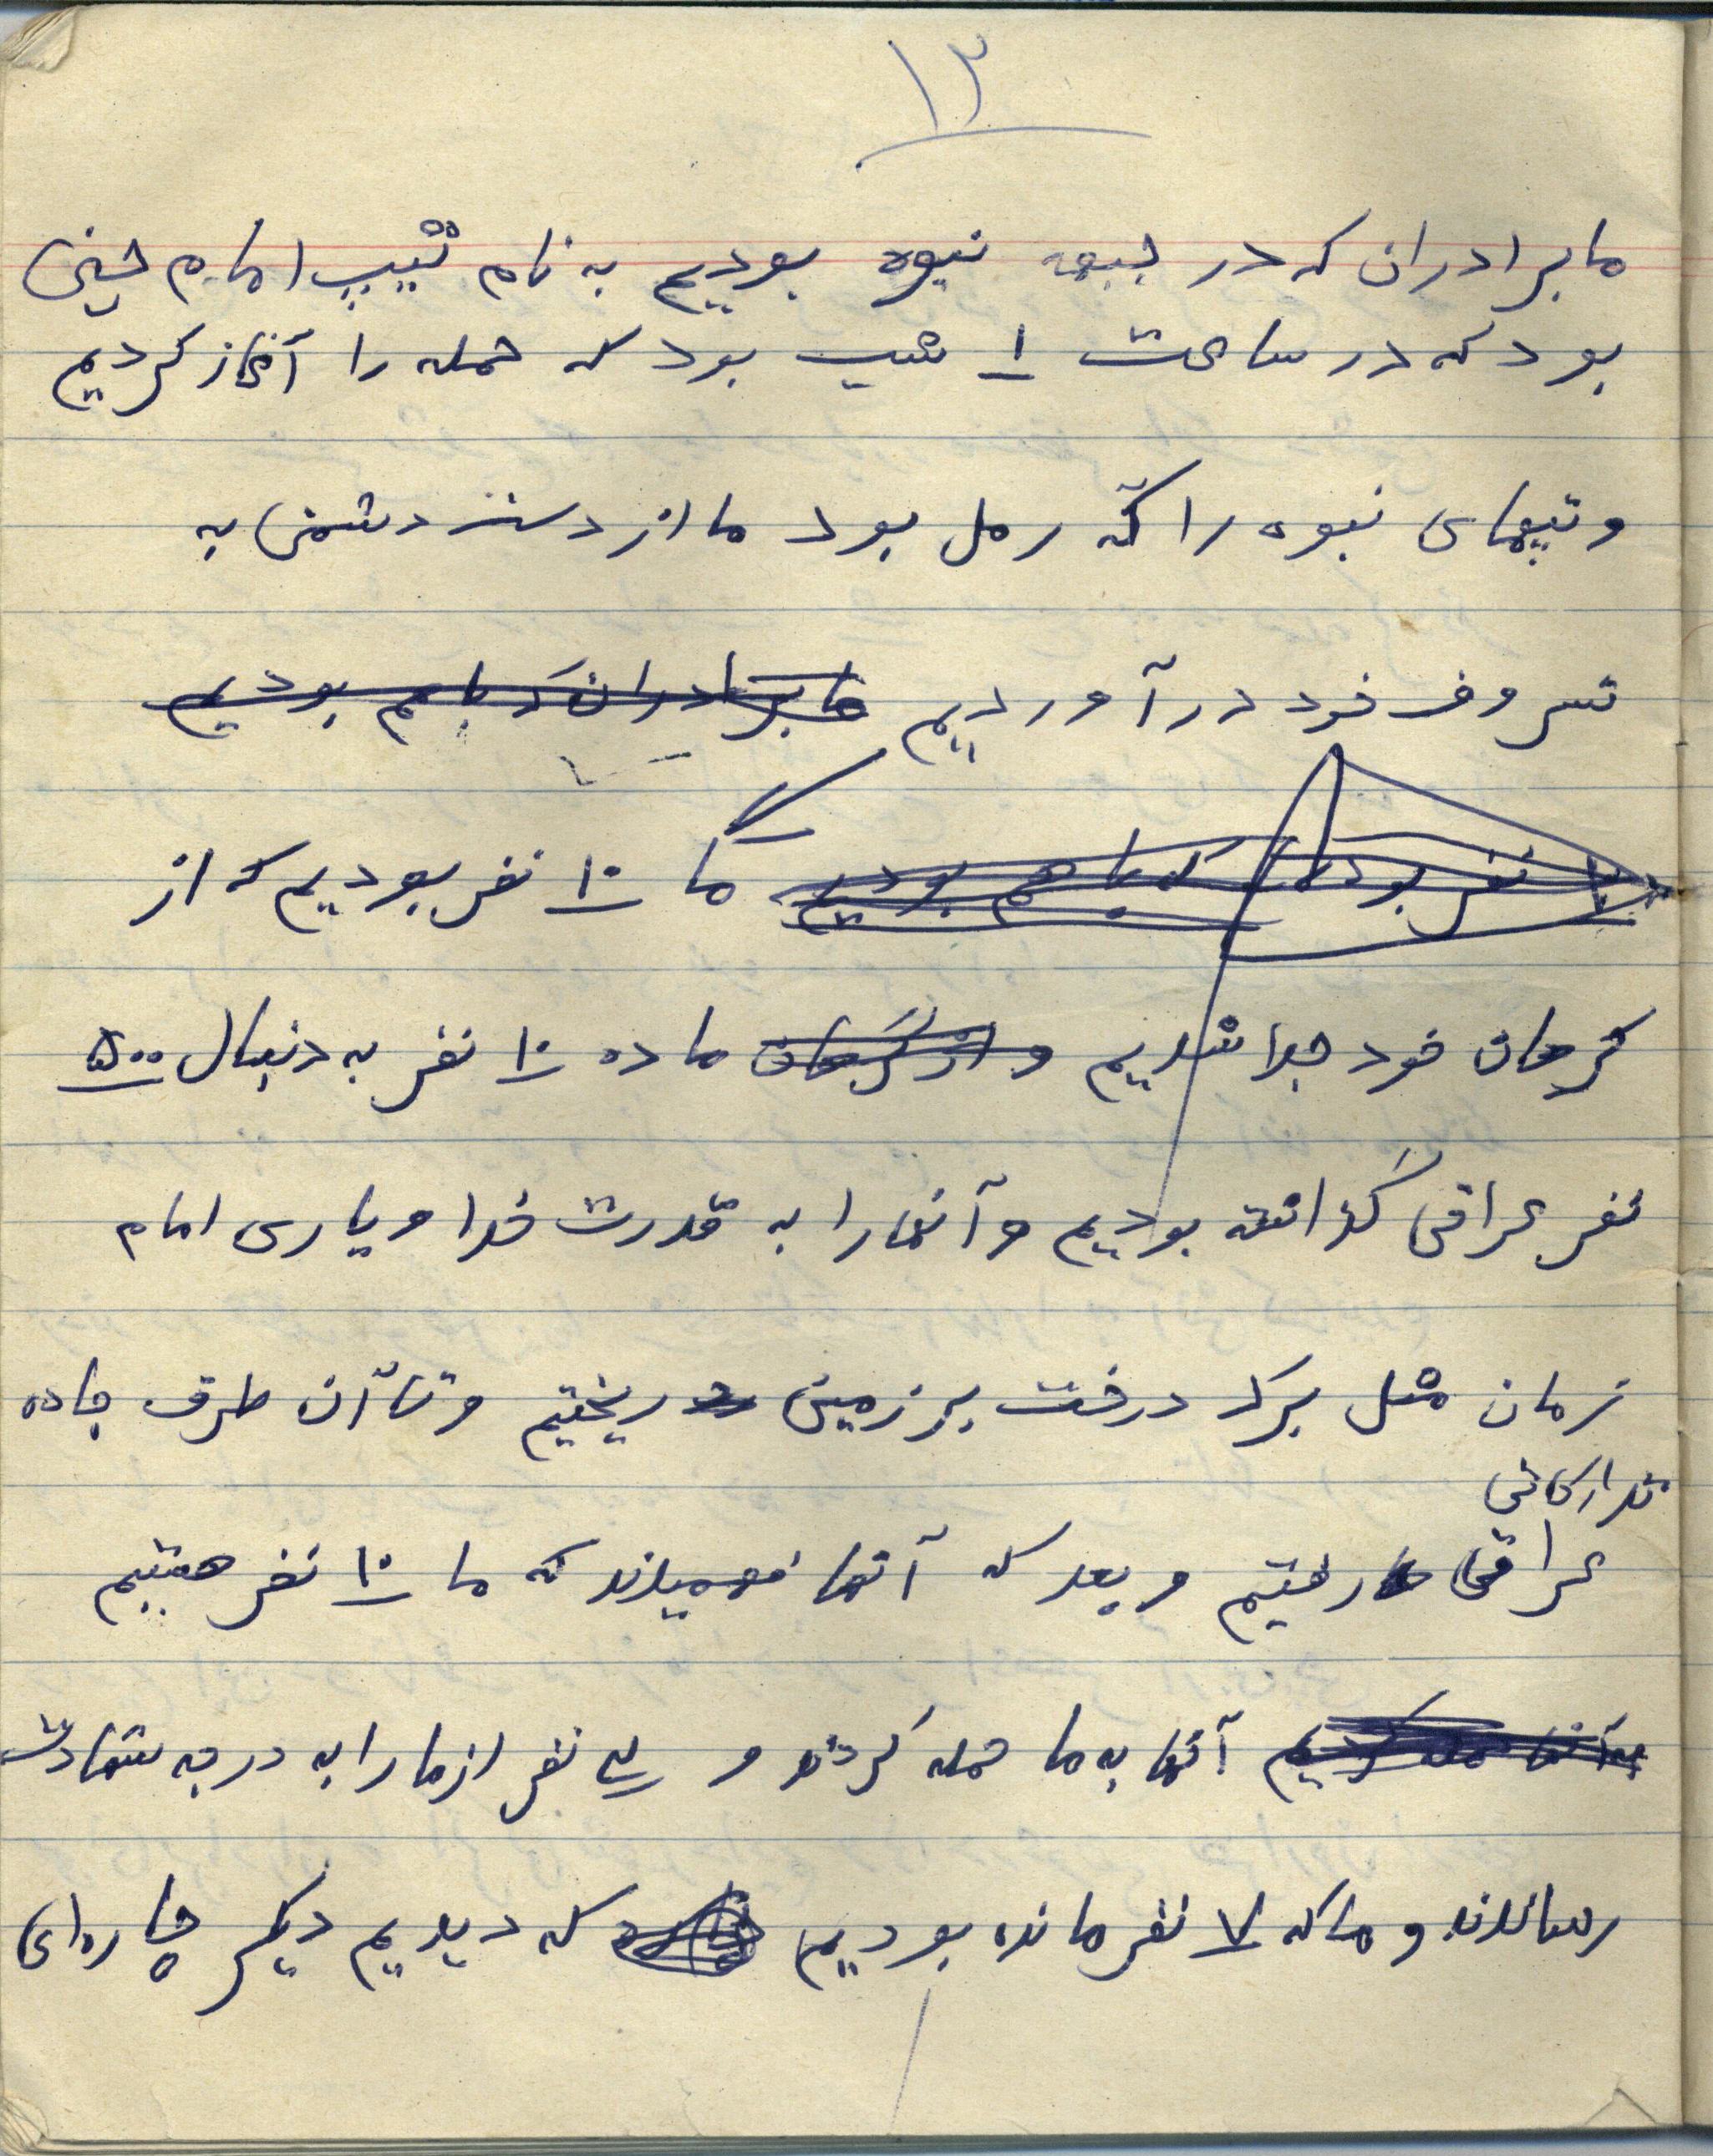 ۱۳
ما برادران که در جبهه نبوه بودیم به نام تیپ امام حسین
بود که در ساعت ۱ شب بود که حمله را آغاز کردیم
و تپه‌های نبوه را که رمل بود ما از دست دشمن به
تسروف خود در آوردیم ما برادران که باهم بودیم
۱۰ نفر بودیم که باهم بودیم ما ۱۰ نفر بودیم که از
گرهان خود جدا شدیم و از گرهان ما ده ۱۰ نفر به دنبال ۵۰۰
نفر عراقی گذاشته بودیم و آنها را به قدرت خدا و یاری امام
زمان مثل برگ درخت بر زمین ریختیم و تا آن طرف جاده
تدارکاتی
عراقی رفتیم و بعد که آنها فهمیدند که ما ۱۰ نفر هستیم
به آنها حمله کردیم آنها به ما حمله کردند و سی نفر از ما را به درجه شهادت
رساندند و ما که ۷ نفر مانده بودیم که دیدیم دیگر چاره‌ای